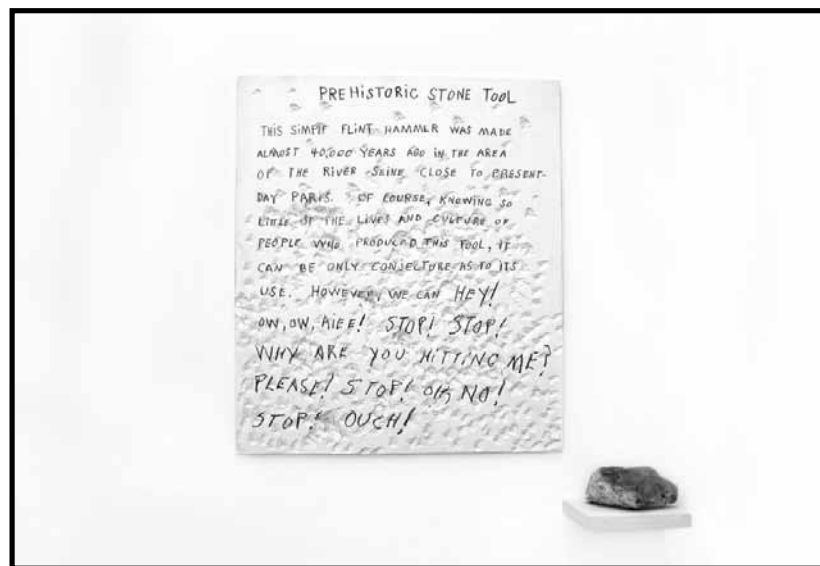 PREHISTORIC STONE TOOL
THIS SIMPLE FLINT HAMMER WAS MADE
ALMOST 40,000 YEARS AGO IN THE AREA
OF THE RIVER SEINE CLOSE TO PRESENT-
DAY PARIS. OF COURSE, KNOWING SO
LITTLE OF THE LIVES AND CULTURE OF
PEOPLE WHO PRODUCED THIS TOOL, IT
CAN BE ONLY CONJECTURE AS TO ITS
USE. HOWEVER, WE CAN HEY!
OW, OW, AIEE! STOP! STOP!
WHY ARE YOU HITTING ME?
PLEASE! STOP! OH NO!
STOP! OUCH!